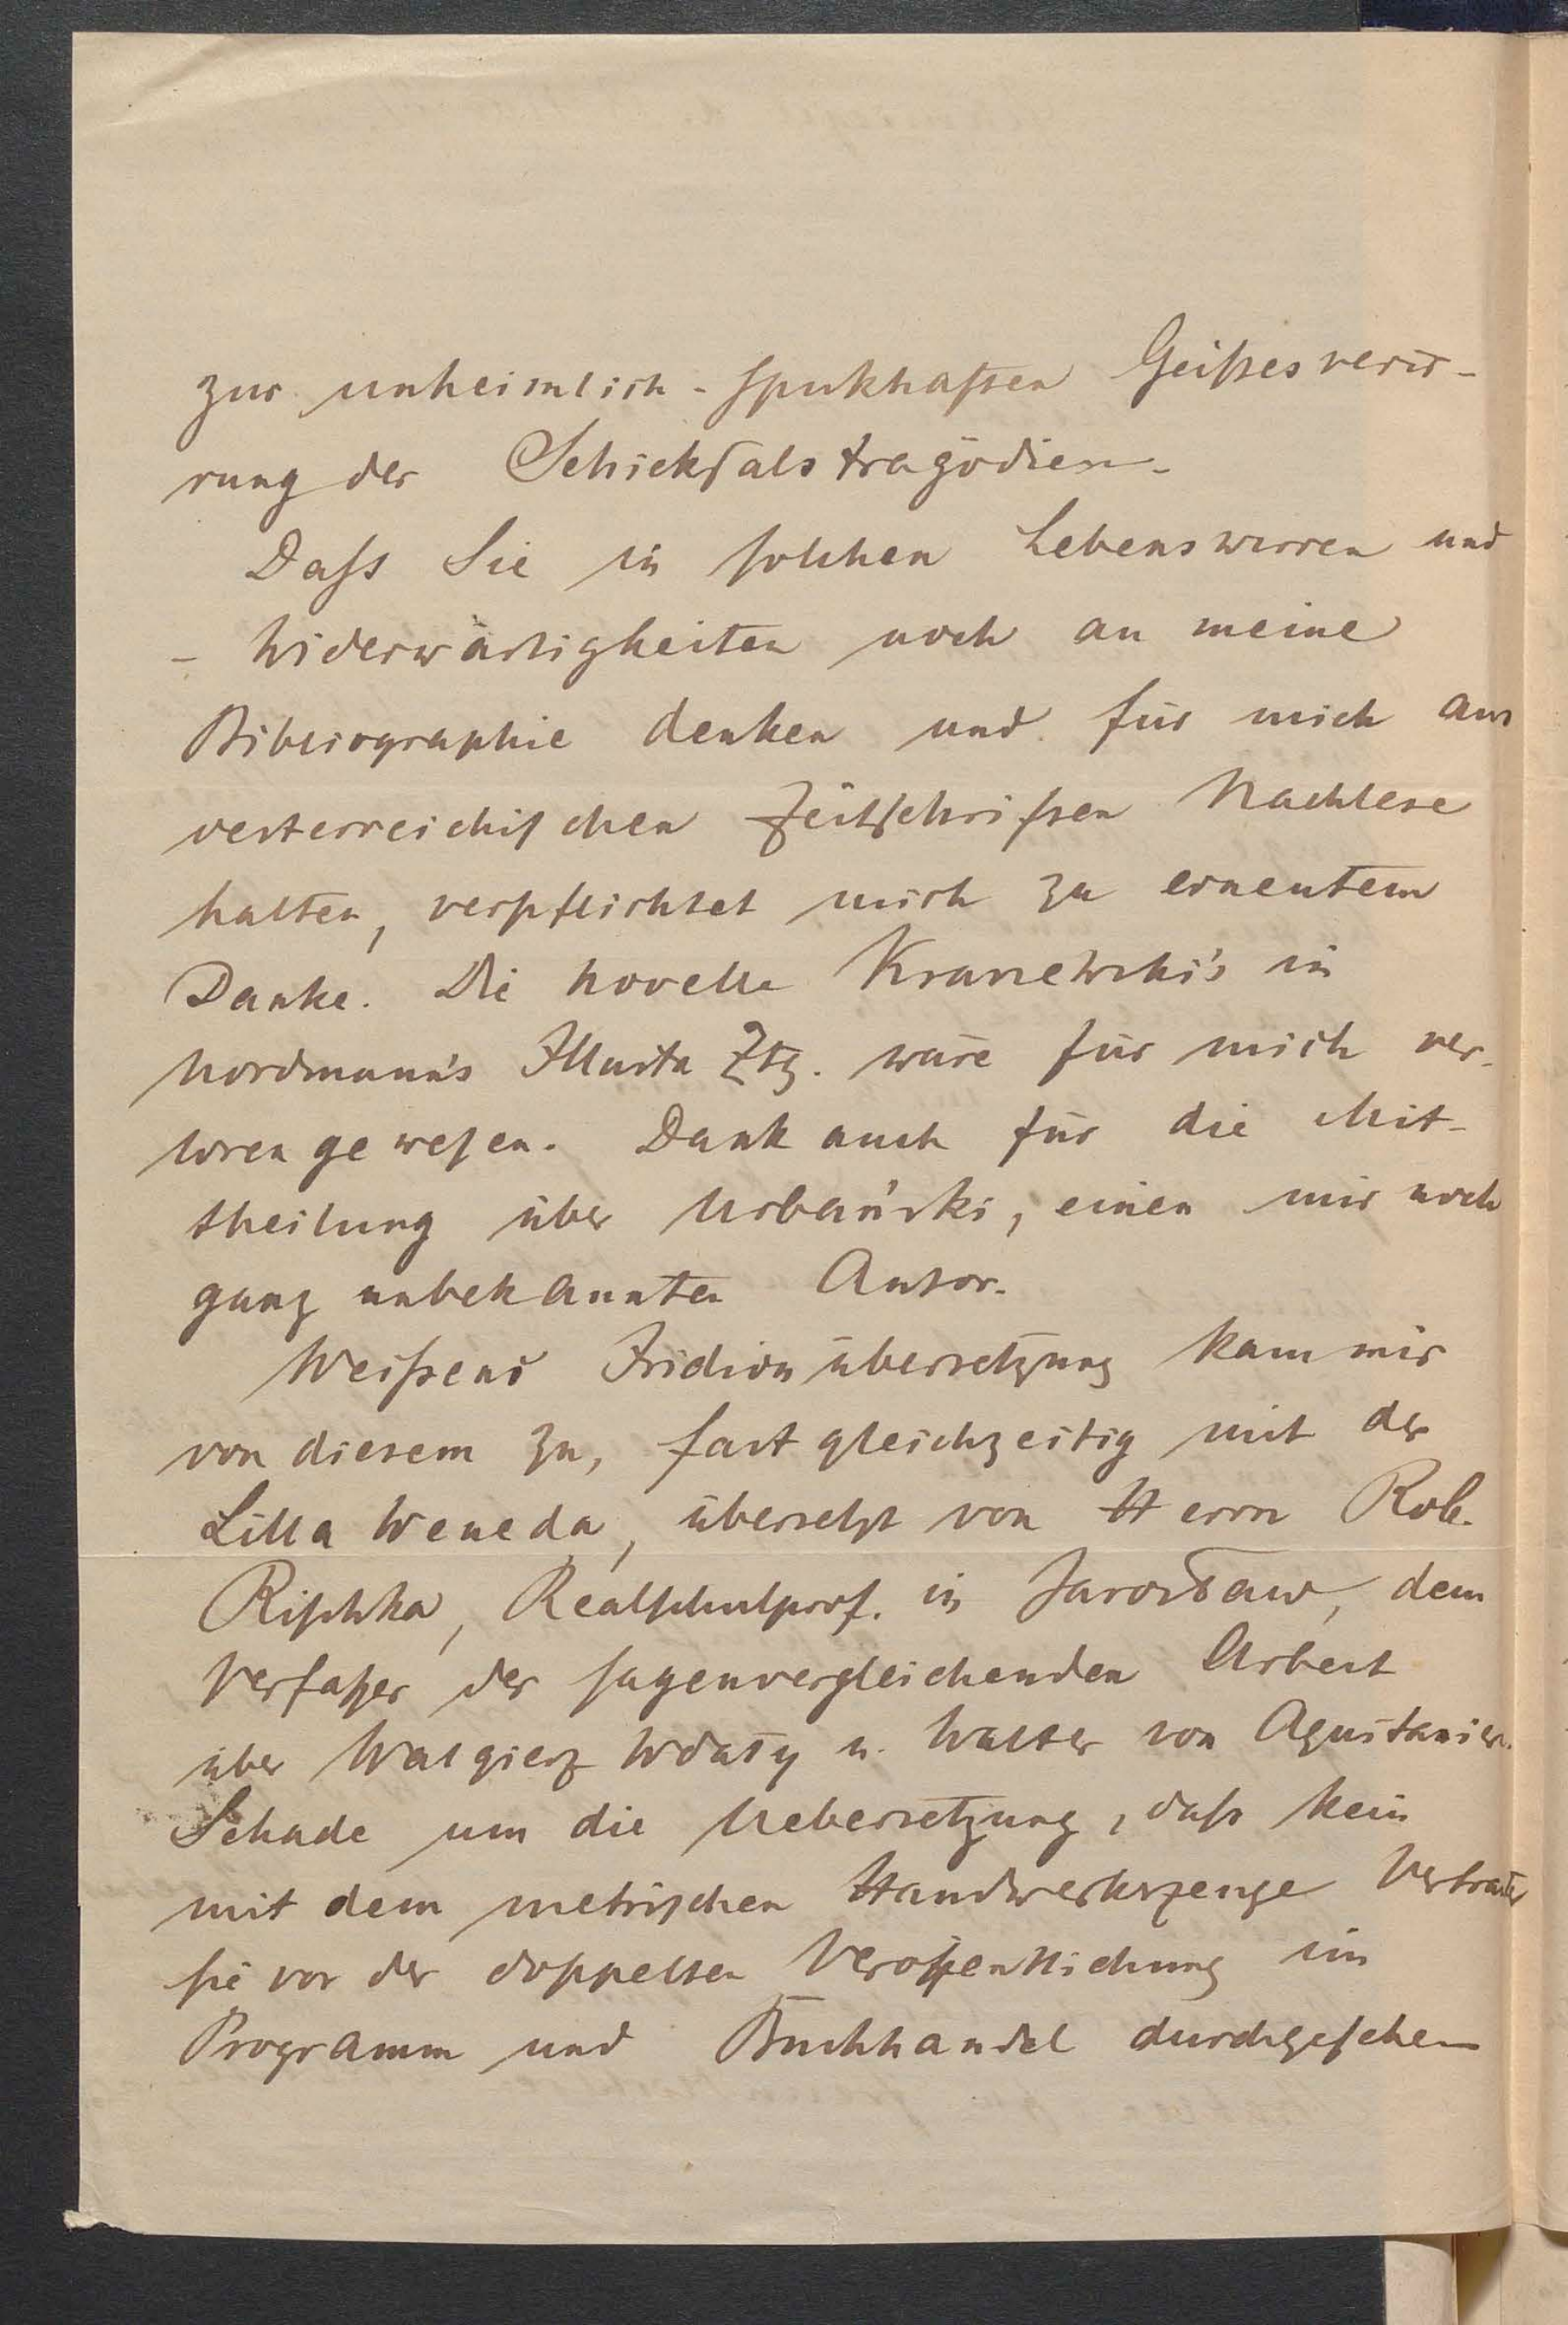 zur unheimlich-spukhaften Geistesverir-
rung der Schicksalstragödien.
Dass Sie in solchen Lebenswirren und
– Widerwärtigkeiten noch an meine
Bibliographie denken und für mich aus
oesterreichischen Zeitschriften Nachlese
halten, verpflichtet mich zu erneutem
Danke. Die Novelle Kraszewski's in
Nordmann's Illustr. Ztg. wäre für mich ver-
loren gewesen. Dank auch für die Mit-
theilung über Urbański, einen mir noch
ganz unbekannten Autor.
Weissens Iridionübersetzung kam mir
von diesem zu, fast gleichzeitig mit der
Lilla Weneda, übersetzt von Herrn Rob.
Rischka, Realschulprof. in Jarosław, dem
Verfasser der sagenvergleichenden Arbeit
über Walgierz Wdały u. Walter von Aquitanien.
Schade um die Uebersetzung, dass kein
mit dem metrischen Handwerkszeuge Vertrauter
sie vor der doppelten Veröffentlichung im
Programm und Buchhandel durchgesehen